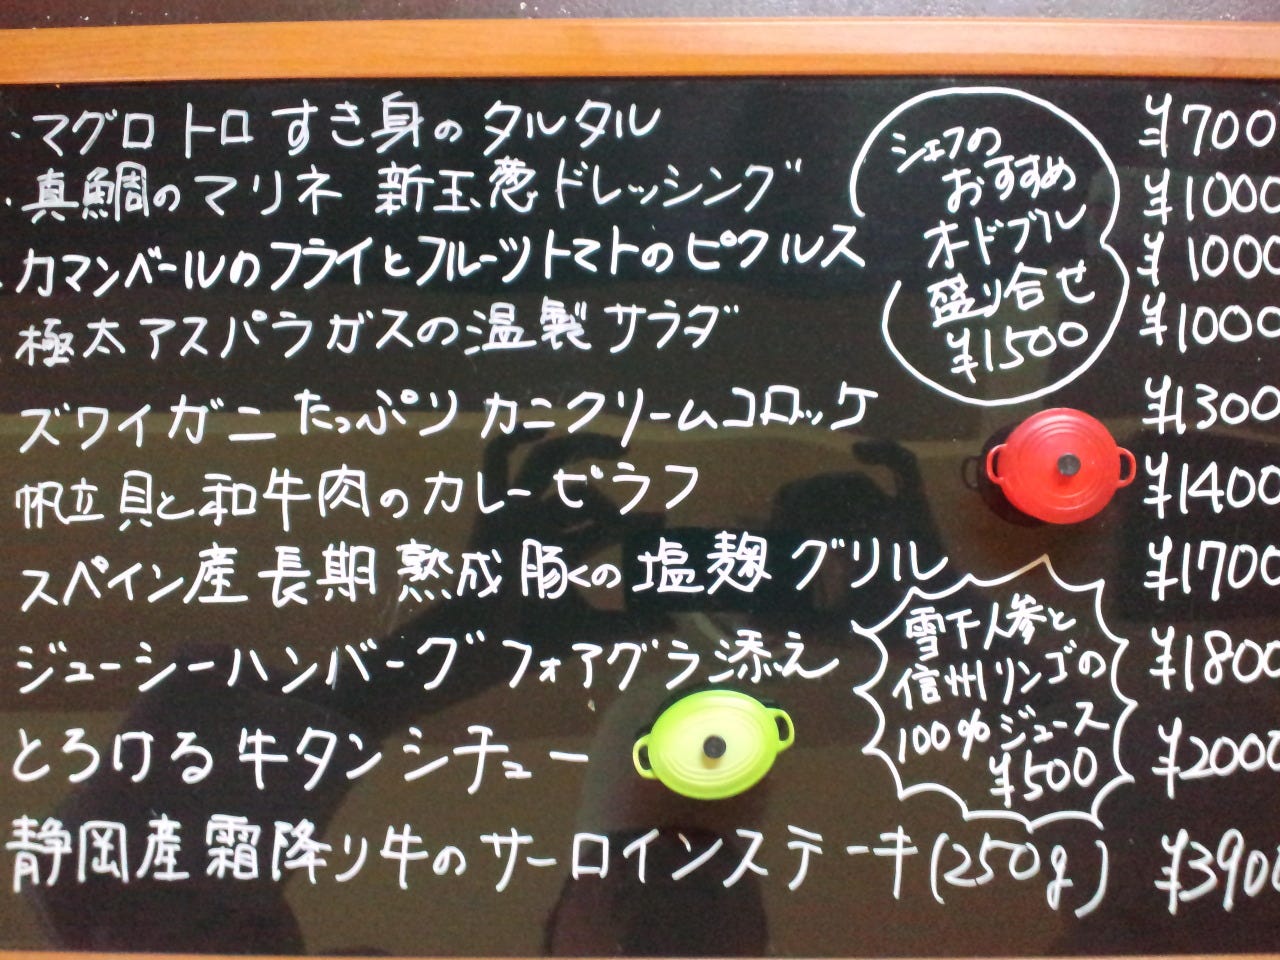 ・マグロトロ すき身の タルタル ¥700
・真鯛のマリネ 新玉葱ドレッシング ¥1000
・カマンベールのフライとフルーツトマトのピクルス ¥1000
・極太アスパラガスの温製サラダ ¥1000
ズワイガニたっぷり カニクリームコロッケ ¥1300
帆立貝と和牛肉のカレーピラフ ¥1400
スペイン産長期熟成豚くの塩麹グリル ¥1700
ジューシーハンバーグフォアグラ添え ¥1800
とろける牛タンシチュー ¥2000
静岡産霜降り牛のサーロインステーキ(250g) ¥3900
シェフの
おすすめ
オードブル
盛り合せ
¥1500
雪下人参と
信州リンゴの
100%ジュース
¥500